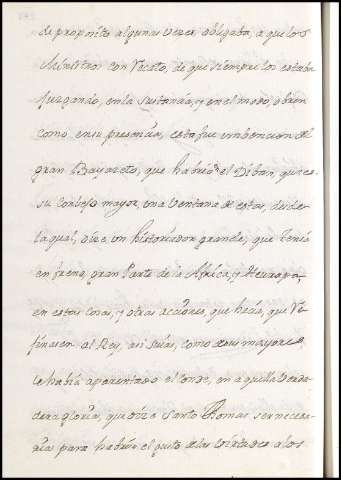 de proposito algunas veces obligaba, a que los
Ministros con recato, de que siempre los estaba
juzgando, en la sustancia, y en el modo, obren
como en su presencia, esta fue imbencion del
gran Bayaceto, que habrio al Diban, que es
su consejo mayor, una ventana de estas, desde
la qual, dize, un historiador grande, que tenia
en freno, gran Parte de la Africa, y Heuropa,
en estas cosas, y otras acciones, que hacia, que
finasen al Rey, asi suias, como sus mayores,
le habia aparentado el conde, en aquella verda
dera gloria, que dize Santo Thomas ser necesa
ria para habrir el gusto de las virtudes a los